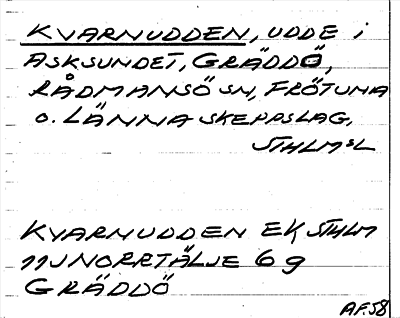 KVARNUDDEN, UDDE i
ASKSUNDET, GRÄDDÖ,
RÅDMANSÖ SN, FRÖTUNA
o. LÄNNA SKEPPSLAG,
STHLMSL
KVARNUDDEN EK STHLM
11J NORRTÄLJE 6 g
GRÄDDÖ
AF.58